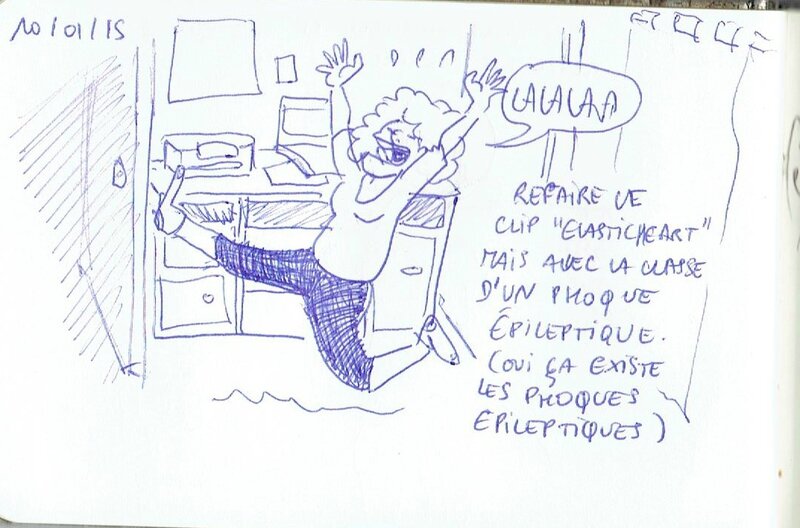 10/01/15
LALALAA
REFAIRE LE
CLIP "ELASTICHEART"
MAIS AVEC LA CLASSE
D'UN PHOQUE
ÉPILEPTIQUE.
(OUI ÇA EXISTE
LES PHOQUES
EPILEPTIQUES)